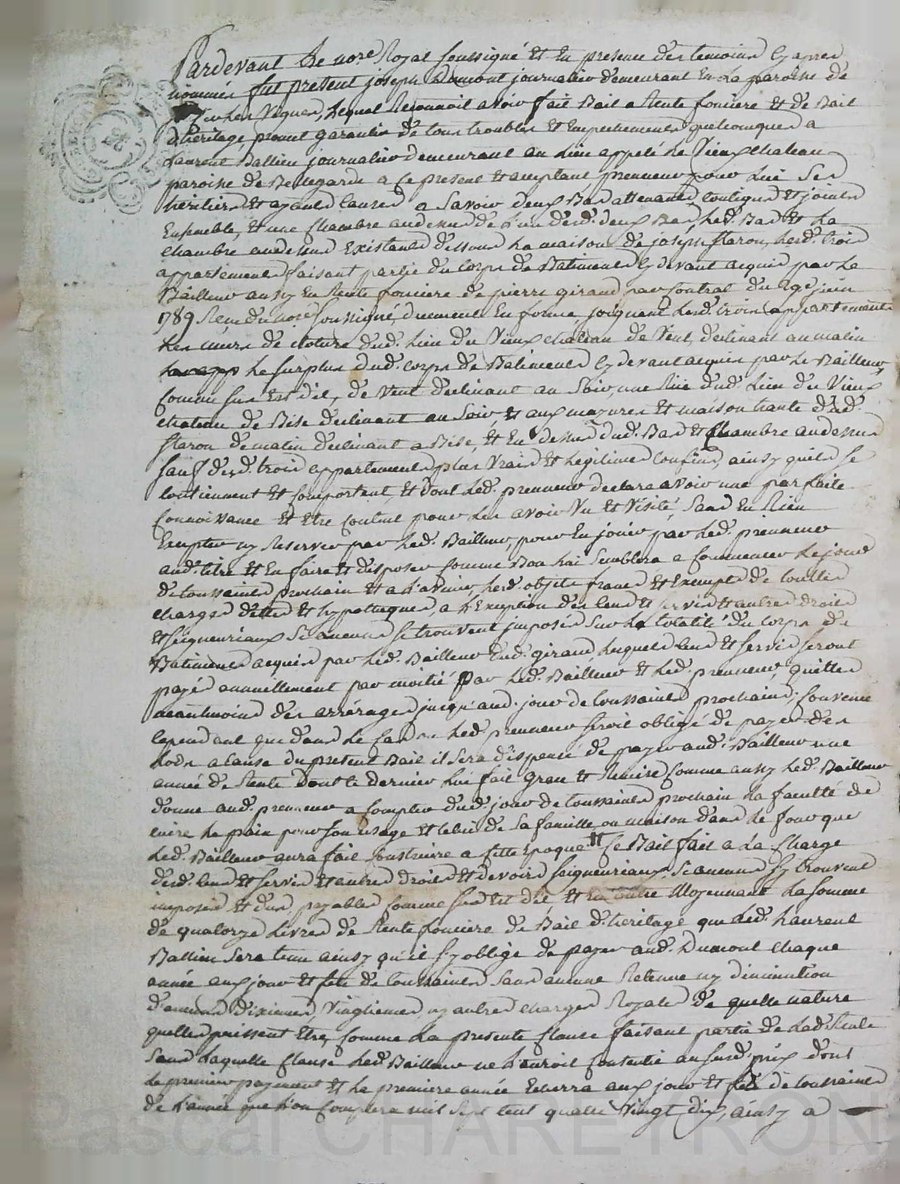 Pardevant Le nore Royal soussigné et En presence des temoins Cy apres
nommés fut present joseph dumont journalier demeurant En La paroisse de
Les Vignes, Lequel Reconnoit avoir fait Bail a Rente fonciere et de Bail
d'heritage, promet garantir de tous troubles et Empechements quelconques a
Laurent Ballieu journalier demeurant au Lieu appelé Le Vieux chateau
paroise de Bellegarde a ce present et acceptant prenneur pour Lui ses
heritiers et ayants causes, a savoir deux Bas attenants, contigus et joints
Ensemble, et une chambre audessus de L'un desd. deux Bas, Lesd. Bas et La
chambre audessus Existants dessous La maison de joseph flaron, Lesd. trois
appartements faisant partie du Corps de Batiments Cy devant acquis par Le
Bailleur aussy En Rente fonciere de pierre giraud par Contrat du juin
1789 Recu du nore soussigné, duement En forme joignant Lesd. trois appartements
Les murs de cloture dud. Lieu du Vieux chateau de Vent, declinant au matin
Le surplus dud. Corps de Batiments Cy devant acquis par Le Bailleur
Comme sus Est dit, de Vent declinant au Soir, une Rue dud. Lieu du Vieux
chateau de Bise declinant au Soir, et aux mazures et maison haute dud.
flaron de matin declinant a Bise, et En dessus dud. Bas et chambre audessus
sauf desd. trois appartements plus Vrais et Legitimes Confins, ainsy qu'ils se
Contiennent et Comportent et dont Led. prenneur declare avoir une parfaite
Connoissance et Etre Content pour Les avoir Vu et Visité, Sans En Rien
Excepter ny Reserver par Led. Bailleur pour En jouir par Led. prenneur
aud. titre et En faire et disposer Comme Bon Lui Semblera a Commencer Le jour
de toussaints prochain et a L'avenir, Lesd. objets francs et Exempts de toutes
charges dettes et hypotteques a L'Exeption des Cens et servis et autres droits
et seigneuriaux Si aucuns se trouvent imposés Sur La totalité du Corps de
Batiments acquis par Led. Bailleur dud. giraud, Lesquels Cens et Servis seront
payés annuellement par moitié par Led. Bailleur et Led. prenneur, quittes
neantmoins des arrérages jusqu'aud. jour de toussaints prochain; Convenu
Cependant que dans Le Cas ou Led. prenneur seroit obligé de payer des
Lods a Cause du present Bail il Sera dispensé de payer aud. Bailleur une
année de Rente dont Le dernier Lui fait grace et Remise Comme aussy Led. Bailleur
donne aud. prenneur a Compter dud. jour de toussaints prochain La faculté de
cuire Le pain pour Son usage et Celui de Sa famille ou maison dans Le four que
Led. Bailleur aura fait Construire a Cette Epoque Ce Bail fait a La Charge
desd. Cens et Servis et autres droits et devoirs Seigneuriaux Si aucuns sy trouvent
imposés et dus, payables Comme sus Est dit et En outre Moyennant La somme
de quatorze Livres de Rente fonciere de Bail d'heritage que Led. Laurent
Ballieu Sera tenu ainsy qu'il sy oblige de payer aud. Dumont chaque
année aux jour et fete de toussaints Sans aucune Retenue ny diminution
d'aucuns dixiemes, Vingtiemes, ny autres charges Royales de quelle nature
quelles puissent Etre, Comme La presente Clause faisant partie de Lad. Rente
Sans Laquelle Clause Led. Bailleur ne L'auroit Consentie au susd. prix dont
Le premier payement et La premiere année Echerra aux jour et fete de toussaints
de L'année que L'on Comptera mil Sept Cent quatre Vingt dix, ainsy a
Pascal CHAREYRON